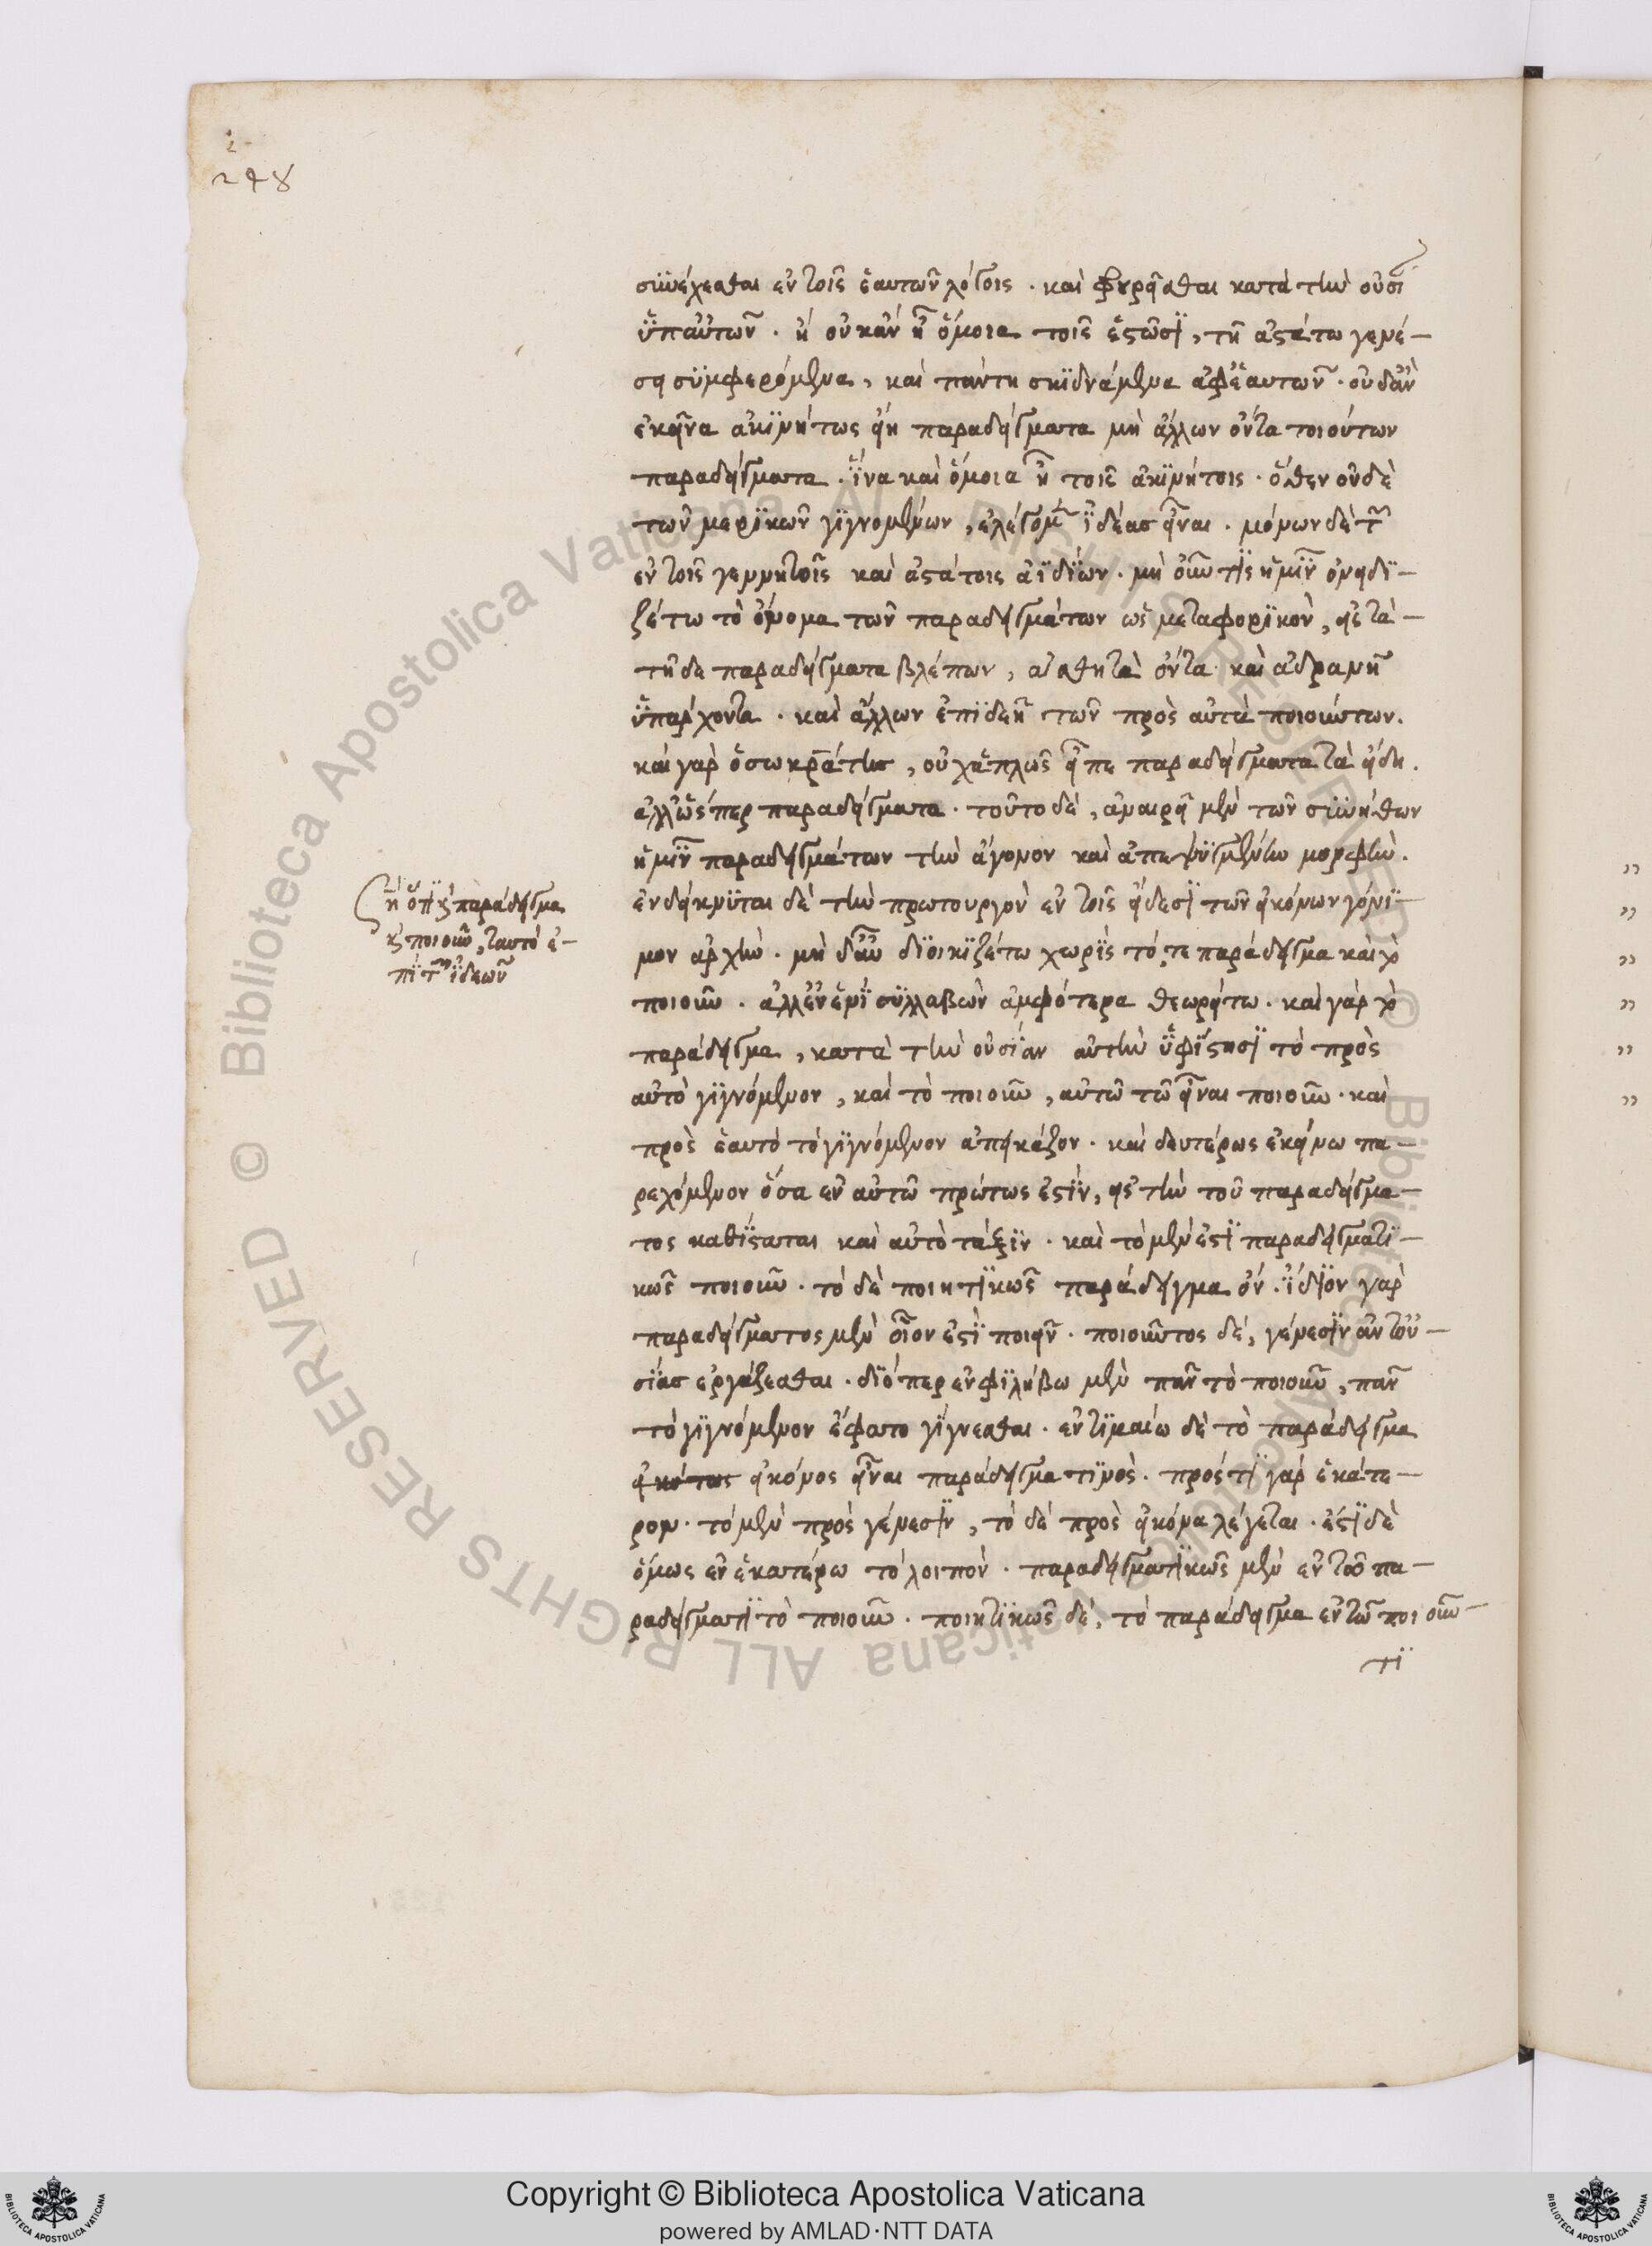 248
συνέχεσθαι ἐν τοῖς ἑαυτῶν λόγοις . καὶ φρουρεῖσθαι κατὰ τὴν οὐσί
ὑπ' αὐτῶν . ἢ οὐκ ἂν ἦ ὅμοια τοῖς ἑστῶσι , τῆ ἀστάτω γενέ-
σει συμφερόμενα , καὶ πάντη σκιδνάμενα ἀφ' ἑαυτῶν . οὐδ' ἂν
ἐκεῖνα ἀκινήτως εἴη παραδείγματα μὴ ἄλλων ὄντα τοιούτων
παραδείγματα . ἵνα καὶ ὅμοια ἦ τοῖς ἀκινήτοις . ὅθεν οὐδὲ
τῶν μερικῶν γιγνομένων , ἐλέγομεν ἰδέας εἶναι . μόνων δὲ τῶν
ἐν τοῖς γεννητοῖς καὶ ἀστάτοις ἀϊδίων . μὴ οὖν τις ἡμῖν ὀνειδι-
ζέτω τὸ ὄνομα τῶν παραδειγμάτων ὡς μεταφορικὸν , εἰς τὰ-
τῆδε παραδείγματα βλέπων , αἰσθητὰ ὄντα καὶ ἀδρανῆ
ὑπάρχοντα . καὶ ἄλλων ἐπιδεῆ τῶν πρὸς αὐτὰ ποιούντων .
καὶ γὰρ ὁ σωκράτης , οὐχ ἁπλῶς εἶπε παραδείγματα τὰ εἴδη .
ἀλλ' ὥσπερ παραδείγματα . τοῦτο δὲ , ἀναιρεῖ μὲν τῶν συνήθων
ἡμῖν παραδειγμάτων τὴν ἄγονον καὶ ἀπεψυγμένην μορφὴν .
ἐνδείκνυται δὲ τὴν πρωτουργὸν ἐν τοῖς εἴδεσι τῶν εἰκόνων γόνι-
μον ἀρχὴν . μὴ δ' αὖ διοικιζέτω χωρὶς τό τε παράδειγμα καὶ τὸ
ποιοῦν . ἀλλ' ἐν ἑνὶ συλλαβὼν ἀμφότερα θεωρείτω . καὶ γὰρ τὸ
παράδειγμα , κατὰ τὴν οὐσίαν αὐτὴν ὑφίστησι τὸ πρὸς
αὐτὸ γιγνόμενον , καὶ τὸ ποιοῦν , αὐτῶ τῶ εἶναι ποιοῦν . καὶ
πρὸς ἑαυτὸ τὸ γιγνόμενον ἀπεικάζον . καὶ δευτέρως ἐκείνω πα-
ρεχόμενον ὅσα ἐν αὐτῶ πρώτως ἐστὶν , εἰς τὴν τοῦ παραδείγμα-
τος καθίσταται καὶ αὐτὸ τάξιν . καὶ τὸ μὲν ἐστὶ παραδειγματι-
κῶς ποιοῦν . τὸ δὲ ποιητικῶς παράδειγμα ὄν . ἴδιον γὰρ
παραδείγματος μὲν οἷον ἐστὶ ποιεῖν . ποιοῦντος δὲ , γένεσιν ἀντ' οὐ-
σίας ἐργάζεσθαι . διόπερ ἐν φιλήβω μὲν πᾶν τὸ ποιοῦν , πᾶν
τὸ γιγνόμενον ἔφατο γίγνεσθαι . ἐν τιμαίω δὲ τὸ παράδειγμα
εἰκότως εἰκόνος εἶναι παράδειγμα τινὸς . πρός τι γὰρ ἑκάτε-
ρον . τὸ μὲν πρὸς γένεσιν , τὸ δὲ πρὸς εἰκόνα λέγεται . ἔστι δὲ
ὅμως ἐν ἑκατέρω τὸ λοιπὸν . παραδειγματικῶς μὲν ἐν τῶ πα-
ραδείγματι τὸ ποιοῦν . ποιητικῶς δὲ , τὸ παράδειγμα ἐν τῶ ποιοῦν-
τι
ὅτι παράδειγμα
καὶ ποιοῦν , ταυτὸ ἐ-
πὶ τῶν ἰδεῶν
© Biblioteca Apostolica Vaticana ALL RIGHTS RESERVED © Biblioteca Apostolica Vaticana ALL RIGHTS RESERVED
Copyright © Biblioteca Apostolica Vaticana
powered by AMLAD·NTT DATA